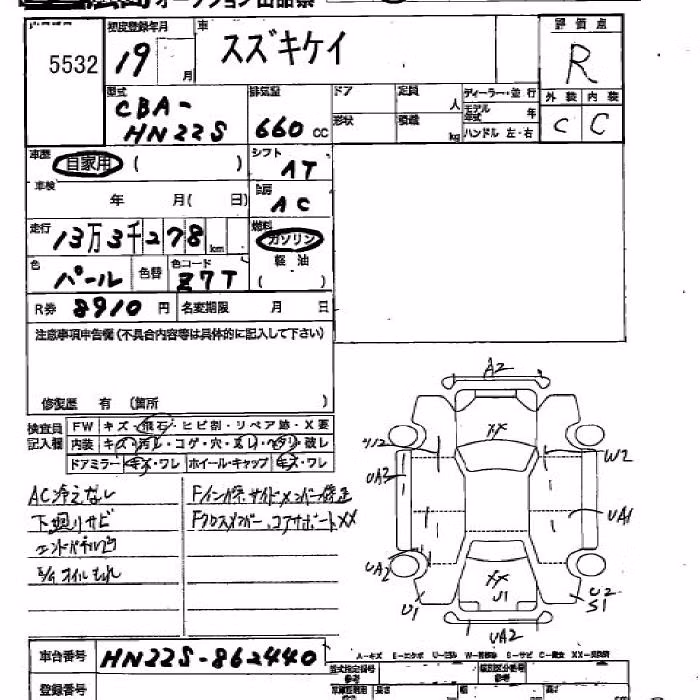 オークション出品票
初度登録年月 車 評価点
5532 19 月 スズキケイ R
型式 排気量 ドア 定員 人 ディーラー・並行 外装 内装
CBA-
HN22S 660 CC 形状 積載 kg モデル年式 年 ハンドル 左・右 C C
車歴 自家用 ( ) シフト AT
車検 年 月( 日) 冷房 AC
走行 13万3千278km 燃料 ガソリン
色 パール 色替 色コード Z7T 軽油 ( )
R券 8910 円 名変期限 月 日
注意事項申告欄(不具合内容等は具体的に記入して下さい)
修復歴 有 (箇所 )
検査員記入欄 FW キズ・飛石・ヒビ割・リペア跡・X要
内装 キズ・汚レ・コゲ・穴・スレ・ヘタリ・破レ
ドアミラー キズ・ワレ ホイール・キャップ キズ・ワレ
AC冷えなし Fインパネ、サイドメンバー修正
下廻りサビ Fクロスメンバー、コアサポートXX
エンドパネル凹
E/gオイルもれ
A2
XX
W2
UA3
UA1
UA2
XX
U1
U1 U2
S1
UA2
A-キズ E-エクボ U-凹み W-補修跡 S-サビ C-腐食 XX-交換済
車台番号 HN22S-862440
型式指定番号 類別区分番号
登録番号 長さ 幅 高さ